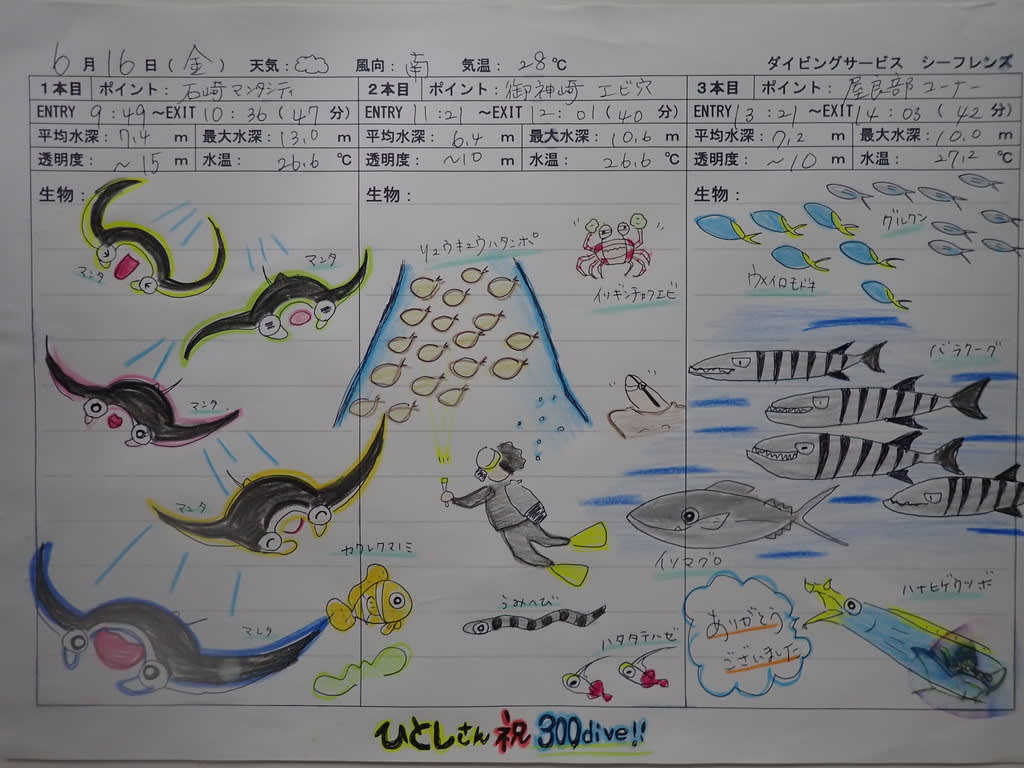 6月16日(金) 天気: 風向: 南 気温: 28℃ ダイビングサービス シーフレンズ
1本目 ポイント: 石崎マンタシティ
ENTRY 9:49～EXIT 10:36(47分)
平均水深: 7.4 m 最大水深: 13.0 m
透明度: ～15 m 水温: 26.6 ℃
生物:
マンタ
マンタ
マンタ
マンタ
マンタ
カクレクマノミ
2本目 ポイント: 御神崎 エビ穴
ENTRY 11:21～EXIT 12:01(40分)
平均水深: 6.4 m 最大水深: 10.6 m
透明度: ～10 m 水温: 26.6 ℃
生物:
リュウキュウハタンポ
イソギンチャクエビ
うみへび
ハタタテハゼ
3本目 ポイント: 屋良部コーナー
ENTRY 13:21～EXIT 14:03(42分)
平均水深: 7.2 m 最大水深: 10.0 m
透明度: ～10 m 水温: 27.2 ℃
生物:
グルクン
ウメイロモドキ
バラクーダ
イソマグロ
ハナヒゲウツボ
ありがとう
ございました
ひとしさん 祝 300dive!!